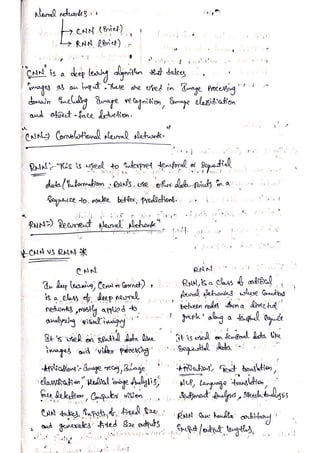 Neural networks :-
→ CNN (Brief)
→ RNN (Brief)
"CNN" is a deep learning algorithm that takes
images as an input. These are used in Image Processing
domain including Image recognition, Image classification
and object-face detection.
CNN => Convolutional Neural Network.
RNN:- This is used to interpret temporal or Sequential
data/Information. RNNs use other data points in a
Sequence to make better predictions.
RNN => Recurrent Neural Network
* CNN VS RNN *
CNN
In deep learning, (CNN or ConvNet)
is a class of deep neural
networks, mostly applied to
analyzing visual imagery
It is used on spatial data like
images and video processing
Applications:- Image recog, Image
classification, Medical image Analysis,
Face detection, Computer vision
CNN takes Inputs of fixed size
and generates fixed size outputs
RNN
RNN, is a class of artificial
Neural Networks where connections
between nodes form a directed
graph along a temporal sequence
It is used on temporal data like
Sequential data
Applications:- Text translation,
NLP, Language translation
Sentiment Analysis, Speech Analysis
RNN can handle arbitrary
Input/output lengths.